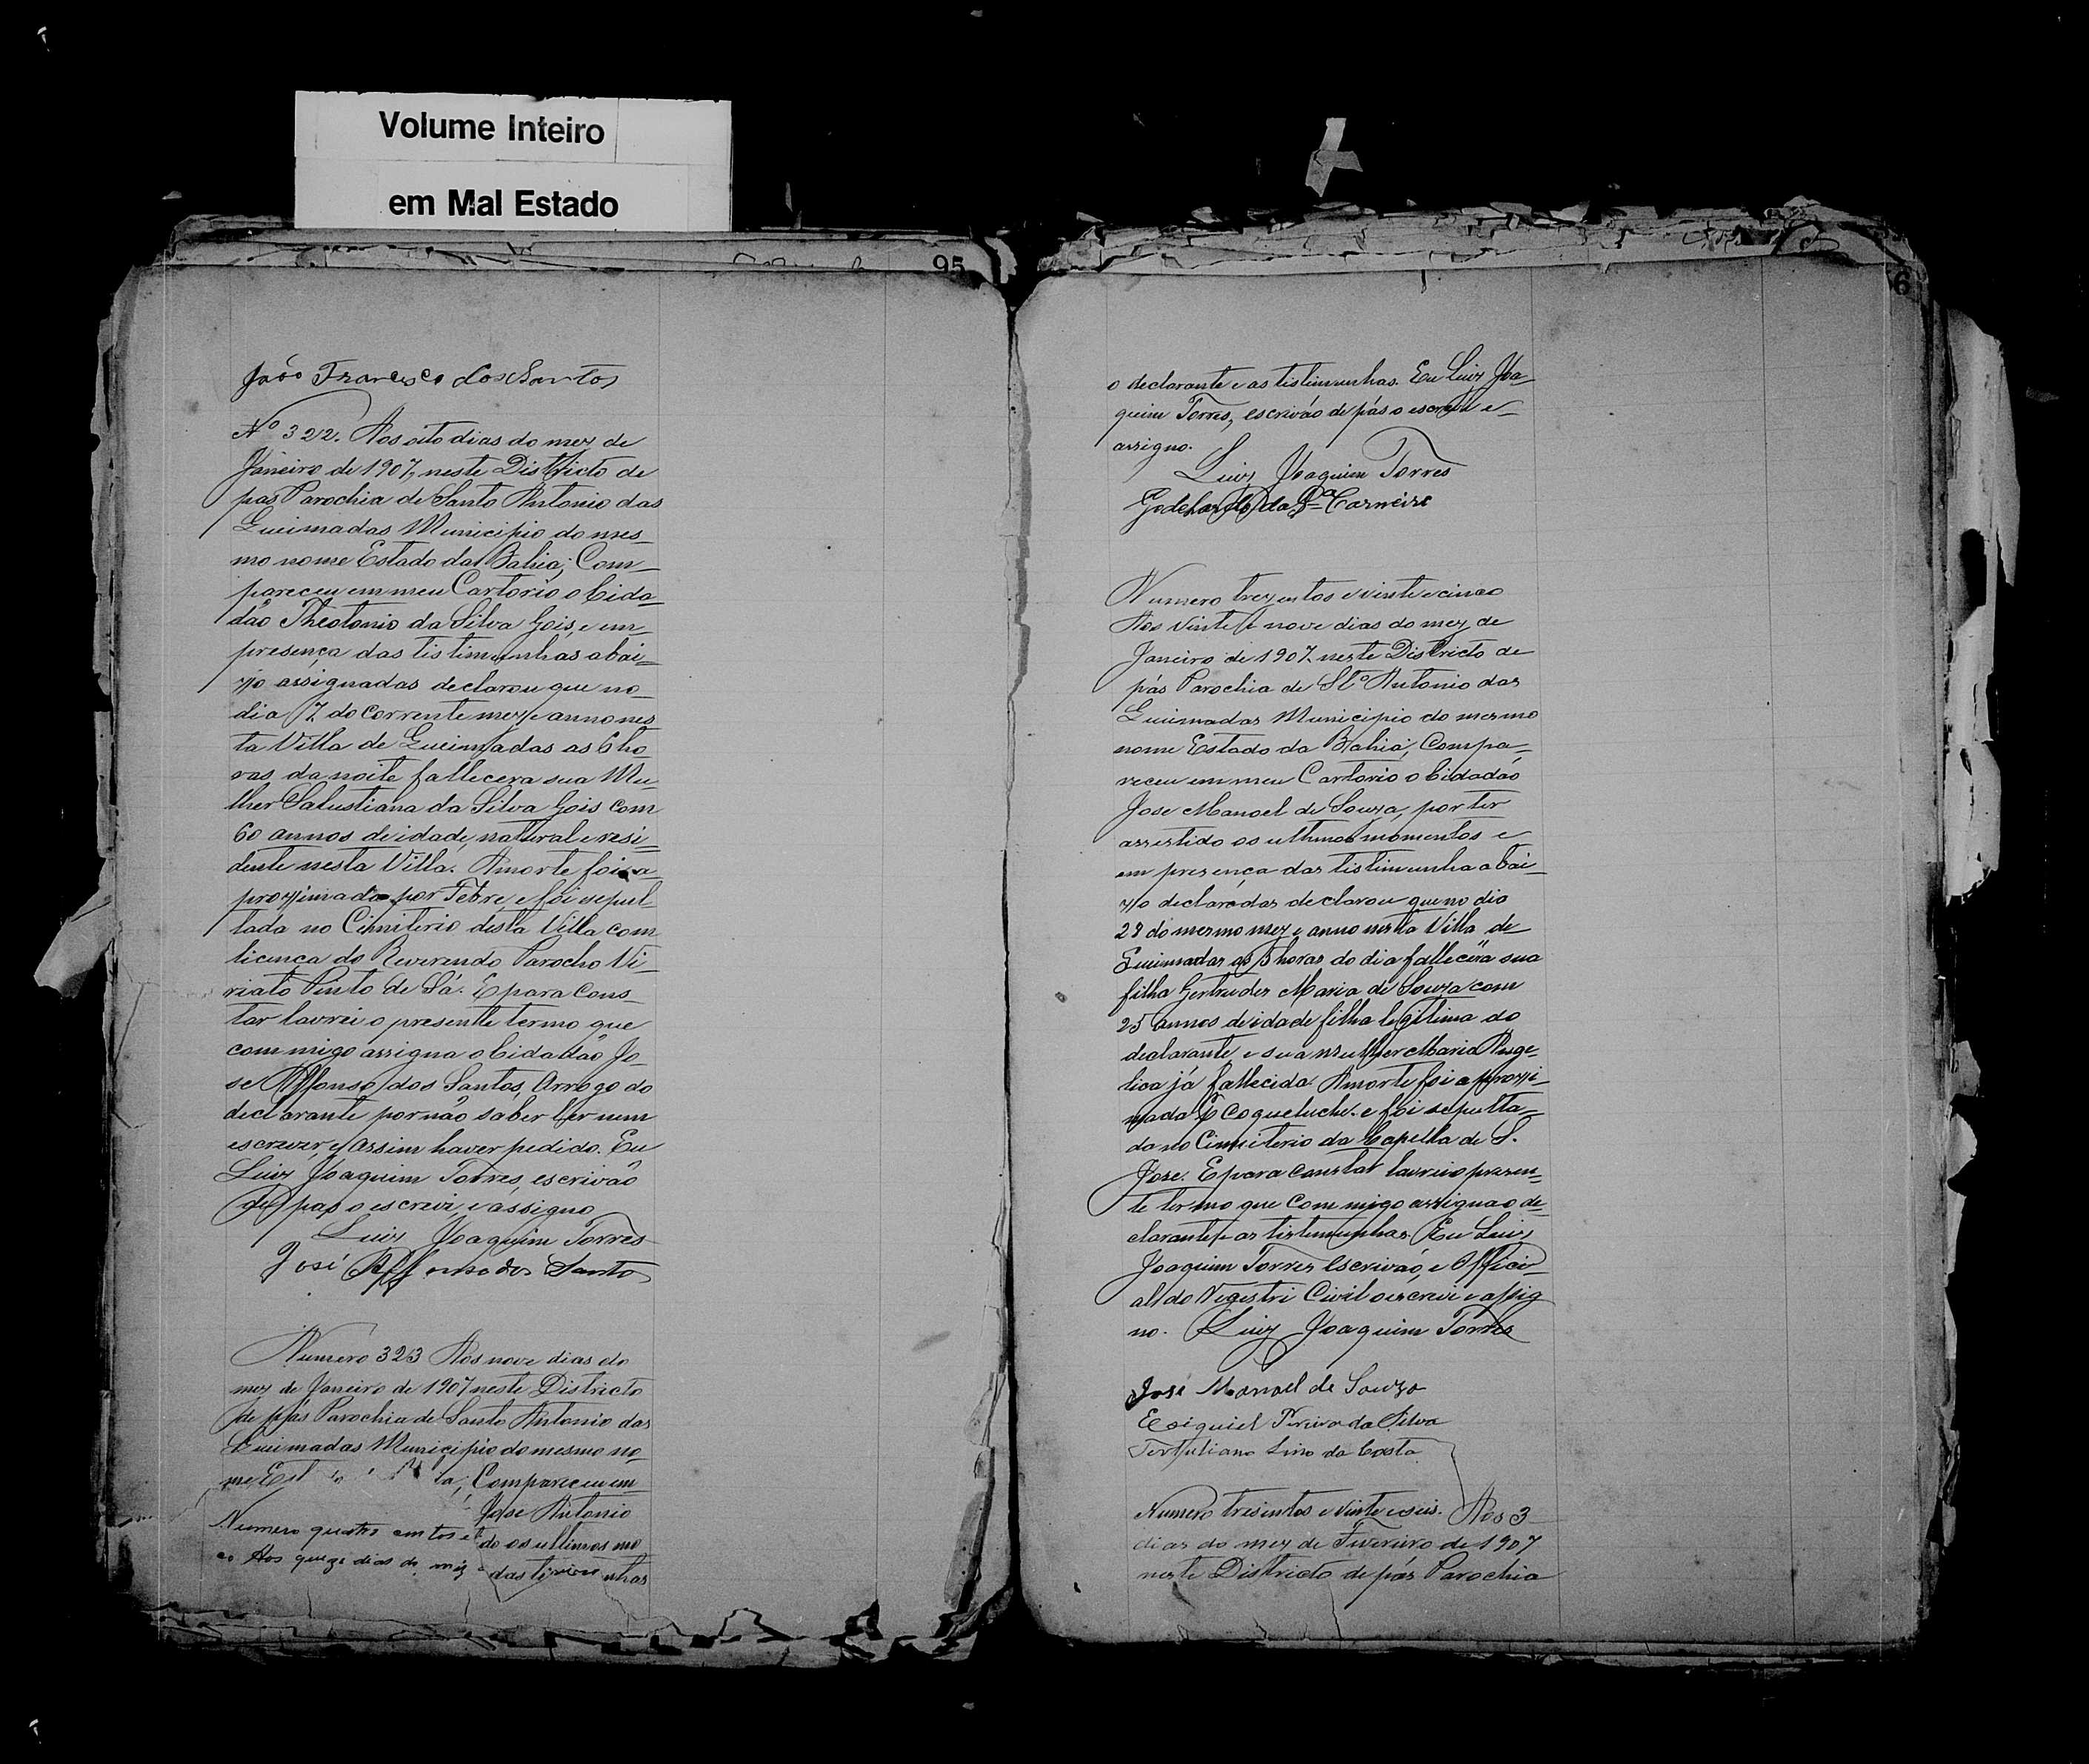 Volume Inteiro
em Mal Estado
95
João Francisco dos Santos
Nº 322. Aos oito dias do mez de
Janeiro de 1907, neste Districto de
pas Parochia de Santo Antonio das
Queimadas Municipio do mes-
mo nome Estado da Bahia; Com-
pareceu em meu Cartorio o Cida-
dão Theotonio da Silva Gois, e em
presença das tistimunhas abai-
xo assignadas declarou que no
dia 7 do corrente mez e anno nes
ta Villa de Queimadas as 6 ho
ras da noite fallecera sua Mu-
lher Salustiana da Silva Gois com
60 annos de idade, natural e resi-
dente nesta Villa. A morte foi a-
proximada por Febre, e foi sepul-
tada no Cimiterio desta Villa com
licença do Reverendo Parocho Vi-
riato Pinto de Sá. E para Cons-
tar lavrei o presente termo que
commigo assigna o Cidadão Jo-
se Affonso dos Santos, Arrogo do
declarante por não saber ler nem
escrever, e assim haver pedido. Eu
Luiz Joaquim Torres, escrivão
de pas o escrevi, e assigno
Luiz Joaquim Torres
José Affonso dos Santos
Numero 323 Aos nove dias do
mez de Janeiro de 1907 neste Districto
de pás Parochia de Santo Antonio das
Queimadas Municipio do mesmo no-
me Est ia, Compareceu em
Jose Antonio
Numero quatro centos e
do os ultimos mo
Aos quize dias do mez
das tistimunhas
6
o declarante e as tistimunhas. Eu Luiz Joa-
quim Torres, escrivão de pás o escrevi e
assigno.
Luiz Joaquim Torres
da Sª Carneiro
Numero trezentos e vinte e cinco
Aos vinte e nove dias do mez de
Janeiro de 1907 neste Districto de
pás Parochia de Stº Antonio das
Queimadas Municipio do mesmo
nome Estado da Bahia, Compa-
receu em meu Cartorio o Cidadão
Jose Manoel de Souza, por ter
assistido os ultimos momentos e
em presença das tistimunha abai-
xo declaradas declarou que no dia
28 do mesmo mez e anno nesta Villa de
Queimadas as 3 horas do dia fallecera sua
filha Gertrudes Maria de Souza com
25 annos de idade filha legitima do
declarante, e sua mulher Maria Ange-
lica já fallecida. A morte foi aproxi-
mada Coqueluche. e foi sepulta-
da no Cimiterio da Capella de S.
Jose. E para constar lavrei o presen-
te termo que commigo assigna o de-
clarante e as tistimunhas. Eu Luiz
Joaquim Torres Escrivão, e Offici-
al do Registri Civil o escrevi e assig
no. Luiz Joaquim Torres
José Manoel de Souza
Esiquiel Pereira da Silva
Tertuliano Lino da Costa
Numero tresentos e vinte e seis. Aos 3
dias do mez de Fivereiro de 1907
neste Districto de pás Parochia